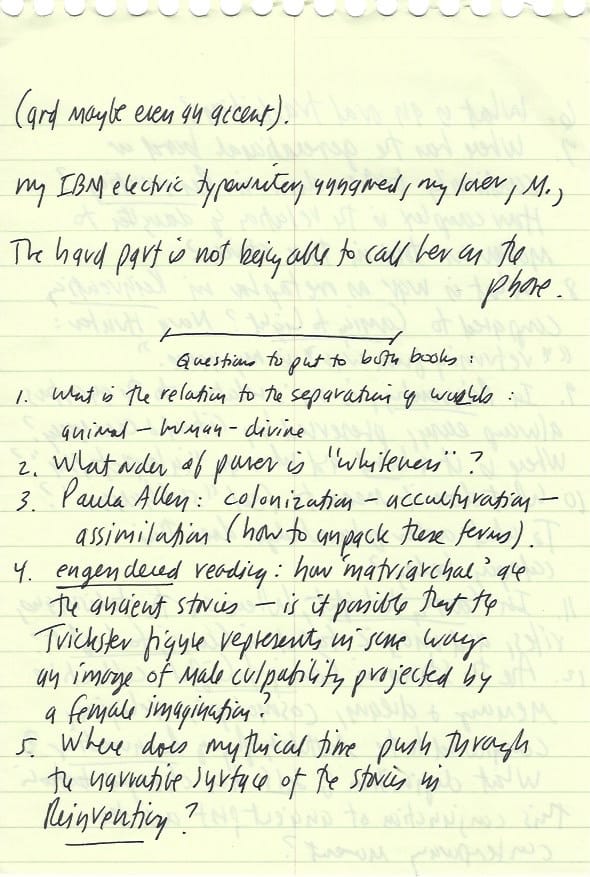 (and maybe even an accent).
my IBM electric typewriter, unnamed, my lover, M.,
The hard part is not being able to call her on the
phone.
Questions to put to both books:
1. What is the relation to the separation of worlds:
animal – human – divine
2. What order of power is "whiteness"?
3. Paula Allen: colonization – acculturation –
assimilation (how to unpack these terms).
4. engendered reading: how 'matriarchal' are
the ancient stories – is it possible that the
Trickster figure represents in some way
an image of male culpability projected by
a female imagination?
5. Where does mythical time push through
the narrative surface of the stories in
Reinventing?